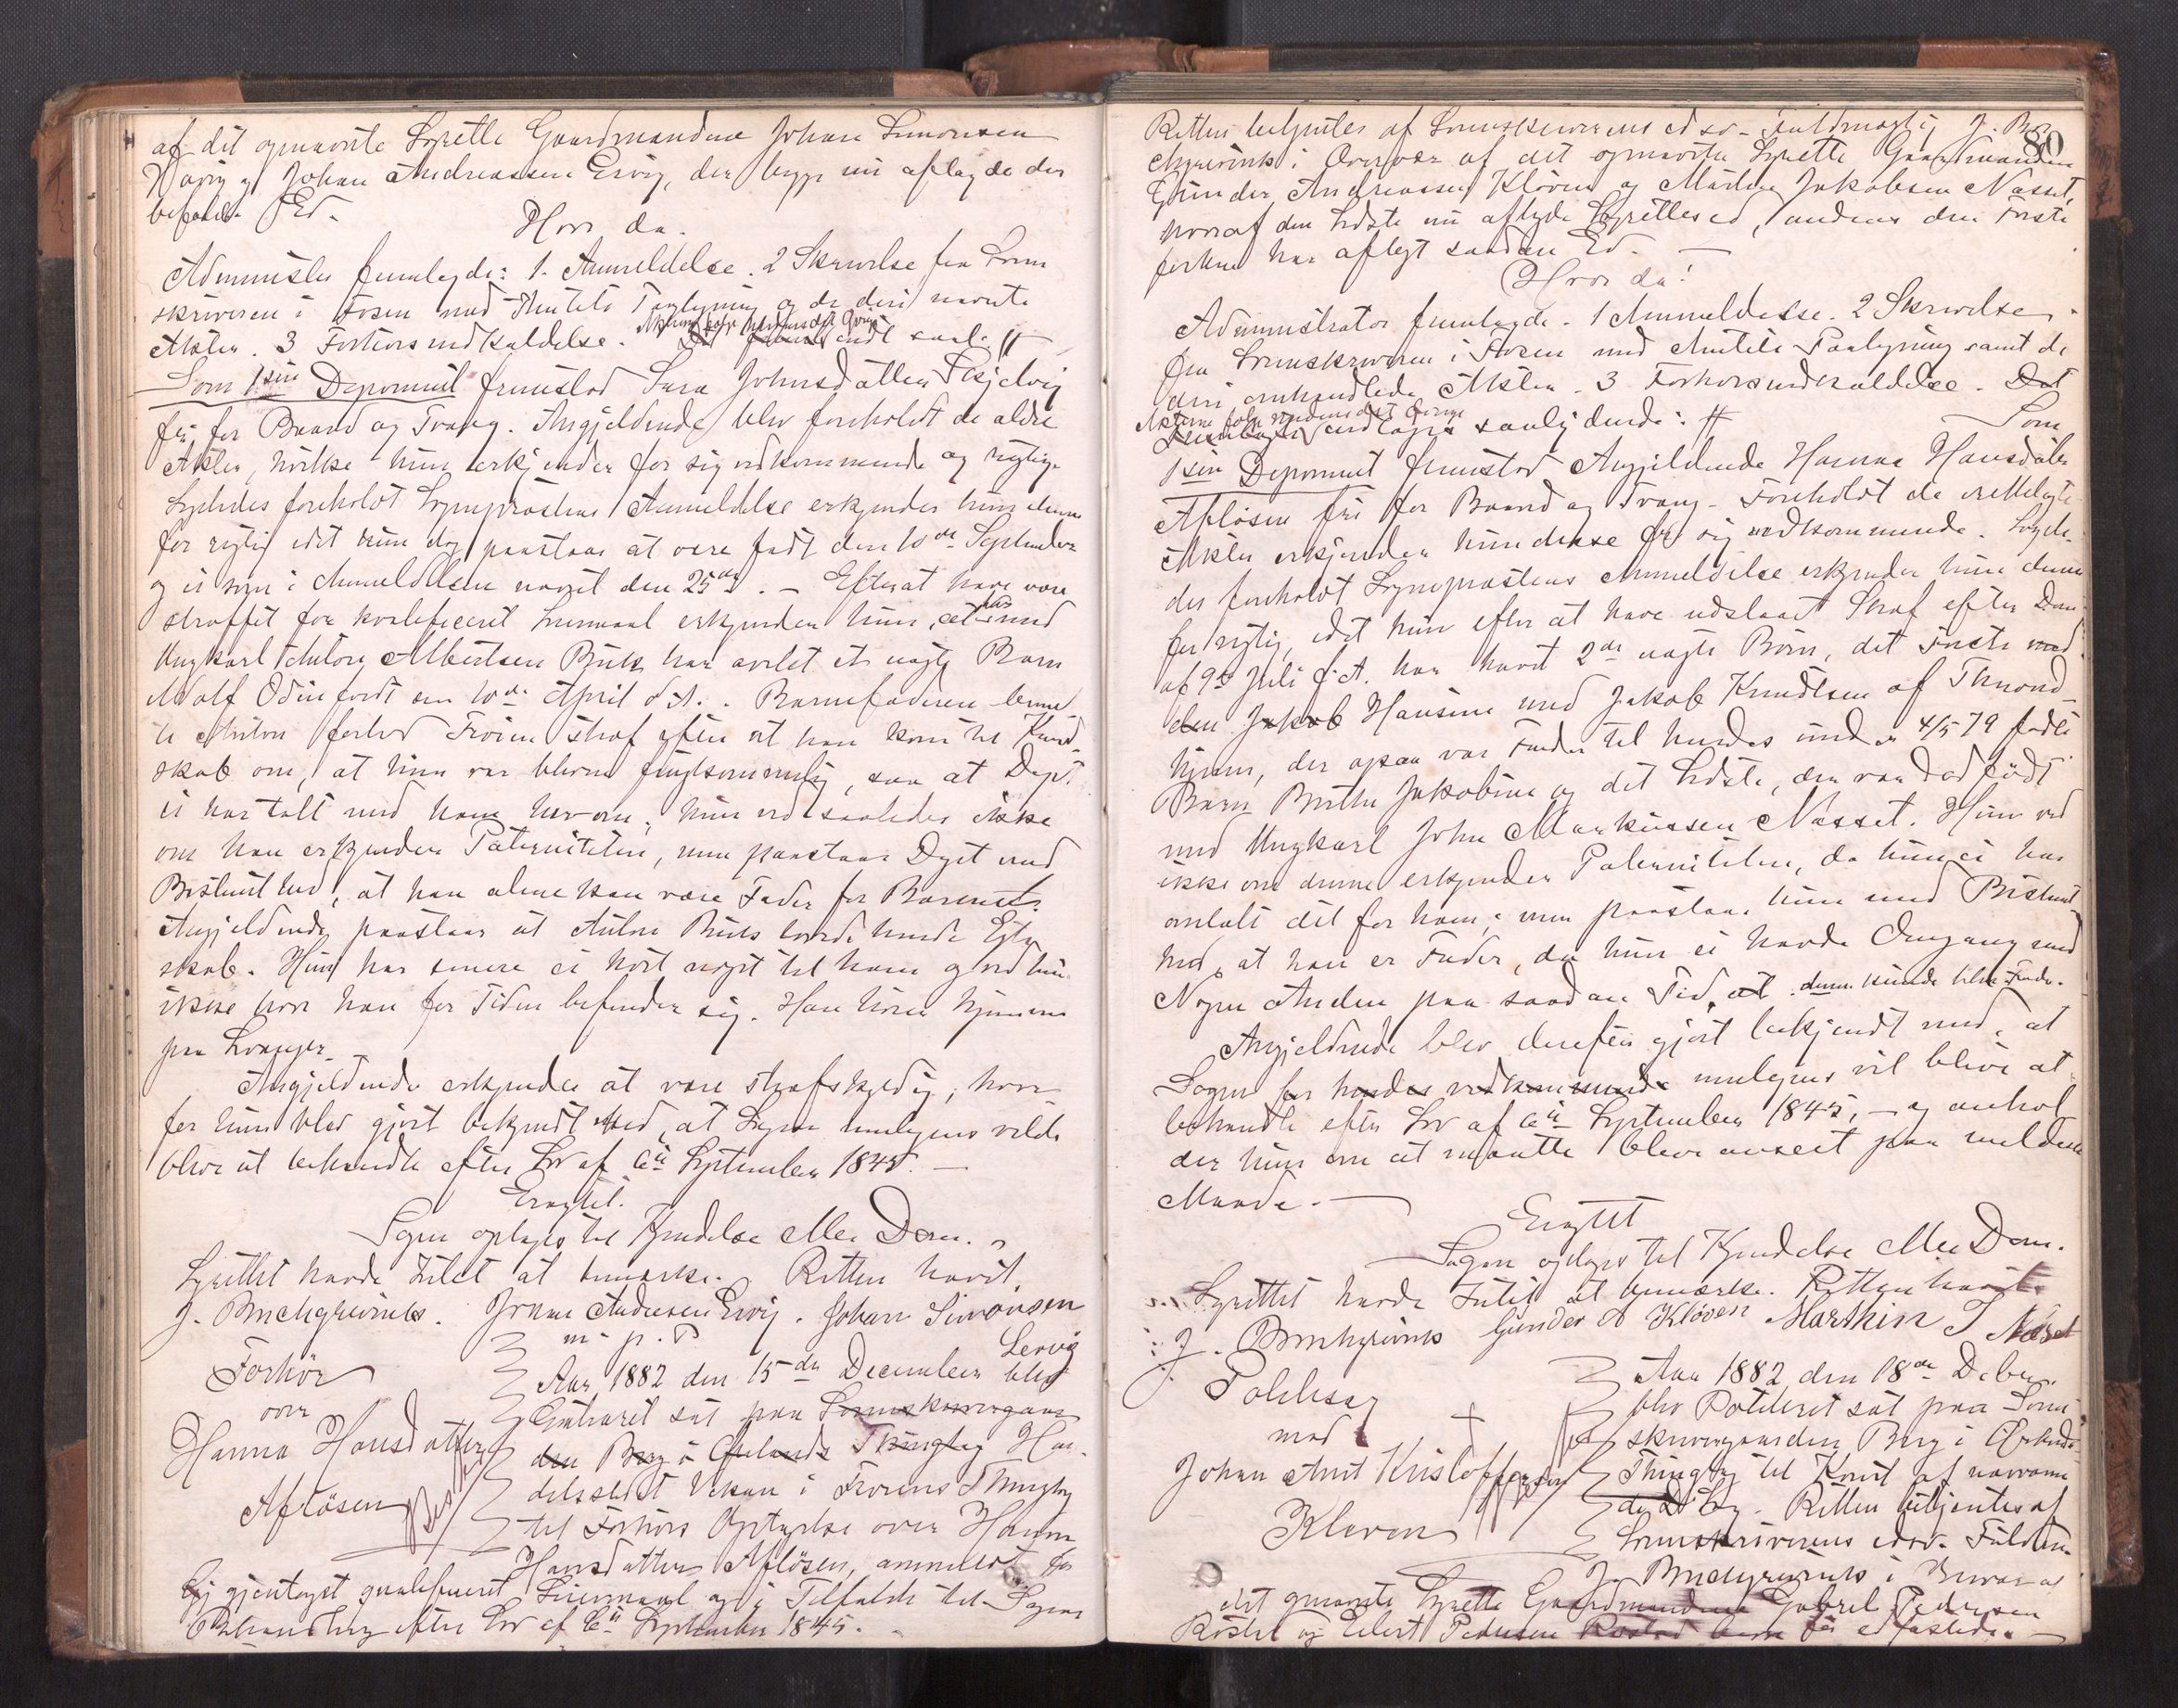 af det opnævnte Lagrette Gaardmændene Johan Simonsen
og Johan Andreassen Ervig, der begge nu aflagde den
befalede Ed.
Hvor da.
Administr. fremlagde: 1. Anmeldelse. 2 Skrivelse fra Soren
skriveren i Fosen med Amtets Paategning og de deri nævnte
Akter. 3 Forhørsindkaldelse.
Som 1ste Deponent fremstod Sara Johnsdatter Skjelvig
fri for Baand og Tvang. Angjeldende blev foreholdt de ældre
Akter, hvilke hun erkjender for sig vedkommende og rigtige.
Ligeledes foreholdt Sognepræstens Anmeldelse erkjender hun denne
for rigtig idet hun dog paastaar at være født den 10de September
og ei som i Anmeldelsen nævnt den 25de. - Efterat have været
straffet for kvalificeret Leiermaal erkjender hun, at hun med
Ungkarl Anton Albertsen Buks har avlet et uægte Barn
Adolf Odin født den 10de April d. A. Barnefaderen benævn
te Anton forlod Frøien strax efter at han kom til Kund-
skab om, at hun var bleven frugtsommelig, saa at Dept.
ei har talt med ham herom; hun ved saaledes ikke
om han erkjender Paterniteten, men paastaar Dept med
Bestemthed, at han alene kan være Fader for Barnet.
Angjeldende paastaar at Anton Buks lovede hende Egte
skab. Hun har senere ei hørt noget til ham og ved hun
ikke hvor han for Tiden befinder sig. Han hører hjemme
paa Levanger.
Angjeldende erkjender at være strafskyldig, hvor-
for hun blev gjort bekjendt med, at Sagen muligens vilde
blive at behandle efter Lov af 6te September 1845. -
Eragtet.
Sagen optages til Kjendelse eller Dom.
Lagrettet havde Intet at bemærke. Retten hævet.
J. Buchgrevink. Johan Andresen Ervig. Johan Simonsen
m. p. P. Lervig
Forhør
over
Hanna Hansdatter
Afløsen
Aar 1882 den 15de December blev
Extraret sat paa Sorenskrivergaar
den Berg i Ørlands Thinglag Han-
delsstedet i Frøiens Thinglag
til Forhørs Optagelse over Hanna
Hansdatter Afløsen, anmeldt for
gjentaget qvalificeret Leiermaal og i Tilfælde til Sagens
Behandling efter Lov af 6te September 1845.
80
Retten betjentes af Sorenskriverens edsv. Fuldmægtig J. Buch
grevink i Overvær af det opnævnte Lagrette Gaardmændene
Gunder Andreassen Kløven og Martin Jakobsen Næsset,
hvoraf den Sidste nu aflagde Lagrettesed, medens den Første
forhen har aflagt saadan Ed. -
Hvor da!
Administrator fremlagde. 1 Anmeldelse. 2 Skrivelse
fra Sorenskriveren i Fosen med Amtets Paategning samt de
deri omhandlede Akter. 3 Forhørsindkaldelse. Det
saalydende: #
Som
1ste Deponent fremstod Angjeldende Hanna Hansdatter
Afløsen fri for Baand og Tvang. Foreholdt de vedlagte
Akter erkjender hun disse for sig vedkommende. Ligele-
des foreholdt Sognepræstens Anmeldelse erkjender hun denne
for rigtig, idet hun efter at have udstaaet Straf efter Dom
af 9de Juli f. A. har havt 2de uægte Børn, det Første med
den Jakob Hansine med Jakob Knudtsen af Thrond-
hjem, der ogsaa var Fader til hendes under 4/5 79 fødte
Barn Jakobine og det Sidste, der var dødfødt
med Ungkarl John Markussen Næsset. Hun ved
ikke om denne erkjender Paterniteten, da hun ei har
omtalt det for ham; men paastaar hun med Bestemt-
hed, at han er Fader, da hun ei havde Omgang med
Nogen Anden paa saadan Tid, at denne kunde blive Fader.
Angjeldende blev derefter gjort bekjendt med, at
Sagen for hendes vedkommende muligens vil blive at
behandle efter Lov af 6te September 1845, - og anhol
der hun om at maatte blive anseet paa mildeste
Maade. -
Eragtet
Sagen optages til Kjendelse eller Dom.
Lagrettet havde Intet at bemærke. Retten hævet.
J. Buchgrevink Gunder A Kløven Marthin J Næset
Politisag
mod
Johan Arnt Kristoffersen
Kleven
Aar 1882 den 18de Debr.
blev Politiret sat paa Soren
skrivergaarden Berg i Ørlands
Thinglag til Korst af nævnte
Retten betjentes af
Sorenskriverens edsv. Fuldm.
J. Buchgrevink i Overvær af
det opnævnte Lagrette Gaardmændene Gabriel Pedersen
og Edvert Pedersen